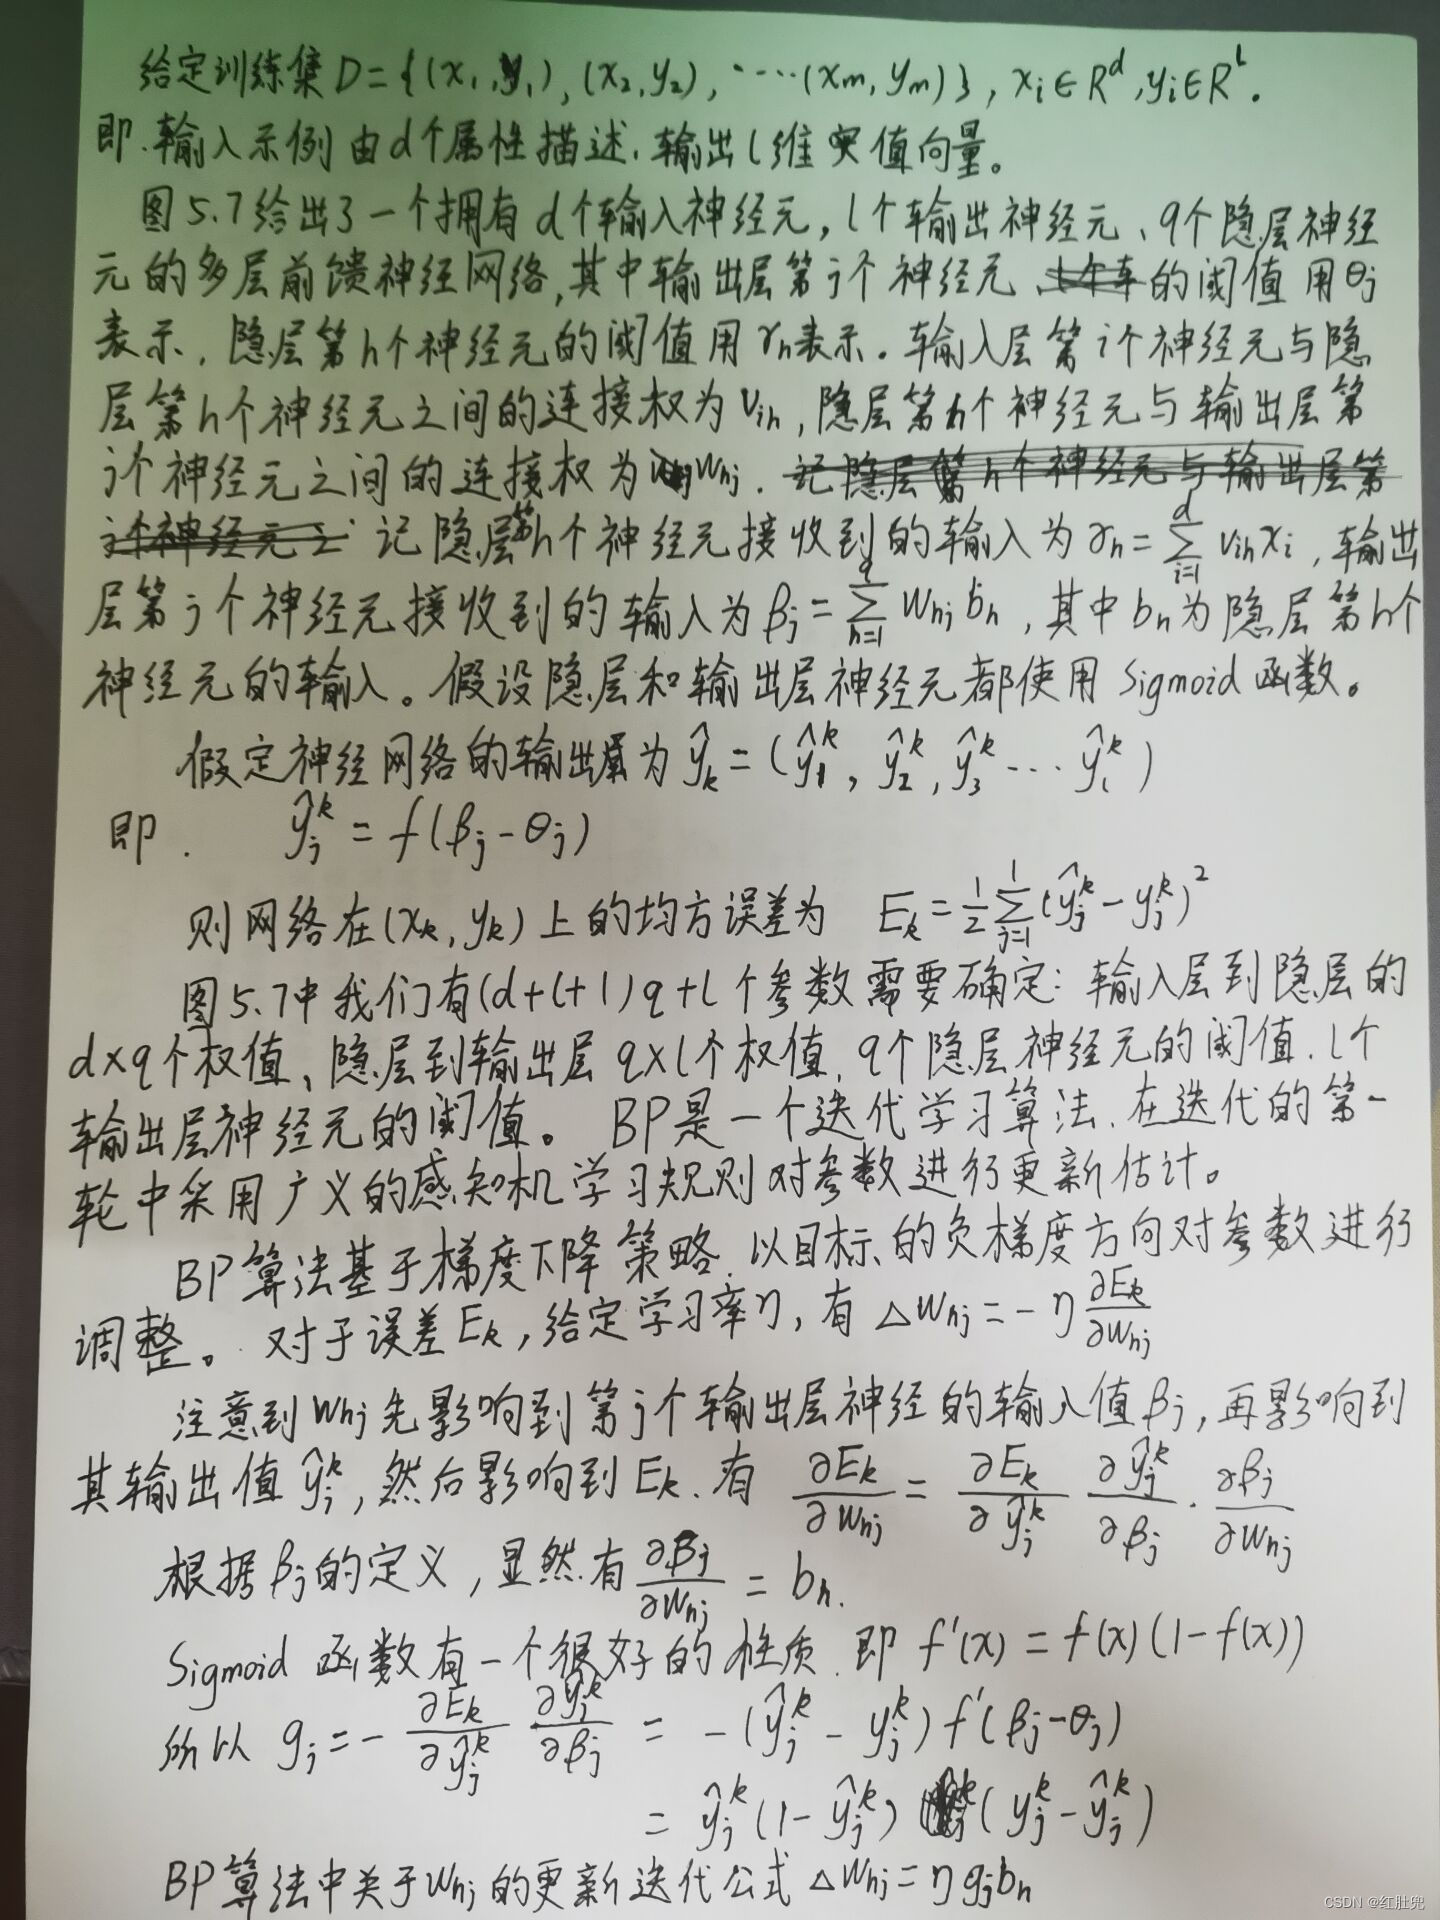 给定训练集D={(x₁,y₁),(x₂,y₂),……(xm,ym)},xi∈R^d,yi∈R^l.
即.输入示例由d个属性描述.输出l维实值向量。
图5.7给出了一个拥有d个输入神经元,l个输出神经元、q个隐层神经
元的多层前馈神经网络,其中输出层第j个神经元的阈值用θj
表示,隐层第h个神经元的阈值用γh表示。输入层第i个神经元与隐
层第h个神经元之间的连接权为Vih,隐层第h个神经元与输出层第
j个神经元之间的连接权为Whj. 记隐层第h个神经元与输出层第
j个神经元之 记隐层第h个神经元接收到的输入为αh=∑_{i=1}^{d} Vih xi,输出
层第j个神经元接收到的输入为βj=∑_{h=1}^{q} Whj bh,其中bh为隐层第h个
神经元的输入。假设隐层和输出层神经元都使用Sigmoid函数。
假定神经网络的输出为ŷk=(ŷ₁^k,ŷ₂^k,ŷ₃^k…ŷl^k)
即. ŷj^k=f(βj-θj)
则网络在(xk,yk)上的均方误差为 Ek=1/2∑_{j=1}^{l}(ŷj^k-yj^k)²
图5.7中我们有(d+l+1)q+l个参数需要确定:输入层到隐层的
d×q个权值、隐层到输出层q×l个权值,q个隐层神经元的阈值.l个
输出层神经元的阈值。 BP是一个迭代学习算法.在迭代的第一
轮中采用广义的感知机学习规则对参数进行更新估计。
BP算法基于梯度下降策略.以目标的负梯度方向对参数进行
调整。对于误差Ek,给定学习率η,有 △Whj=-η ∂Ek/∂Whj
注意到Whj先影响到第j个输出层神经的输入值βj,再影响到
其输出值ŷj^k,然后影响到Ek.有 ∂Ek/∂Whj=∂Ek/∂ŷj^k ∂ŷj^k/∂βj·∂βj/∂Whj
根据βj的定义,显然有∂βj/∂Whj=bh.
Sigmoid函数有一个很好的性质.即f'(x)=f(x)(1-f(x))
所以 gj=-∂Ek/∂ŷj^k ∂ŷj^k/∂βj=-(ŷj^k-yj^k)f'(βj-θj)
=ŷj^k(1-ŷj^k)(yj^k-ŷj^k)
BP算法中关于Whj的更新迭代公式△Whj=ηgjbh
CSDN @红肚兜